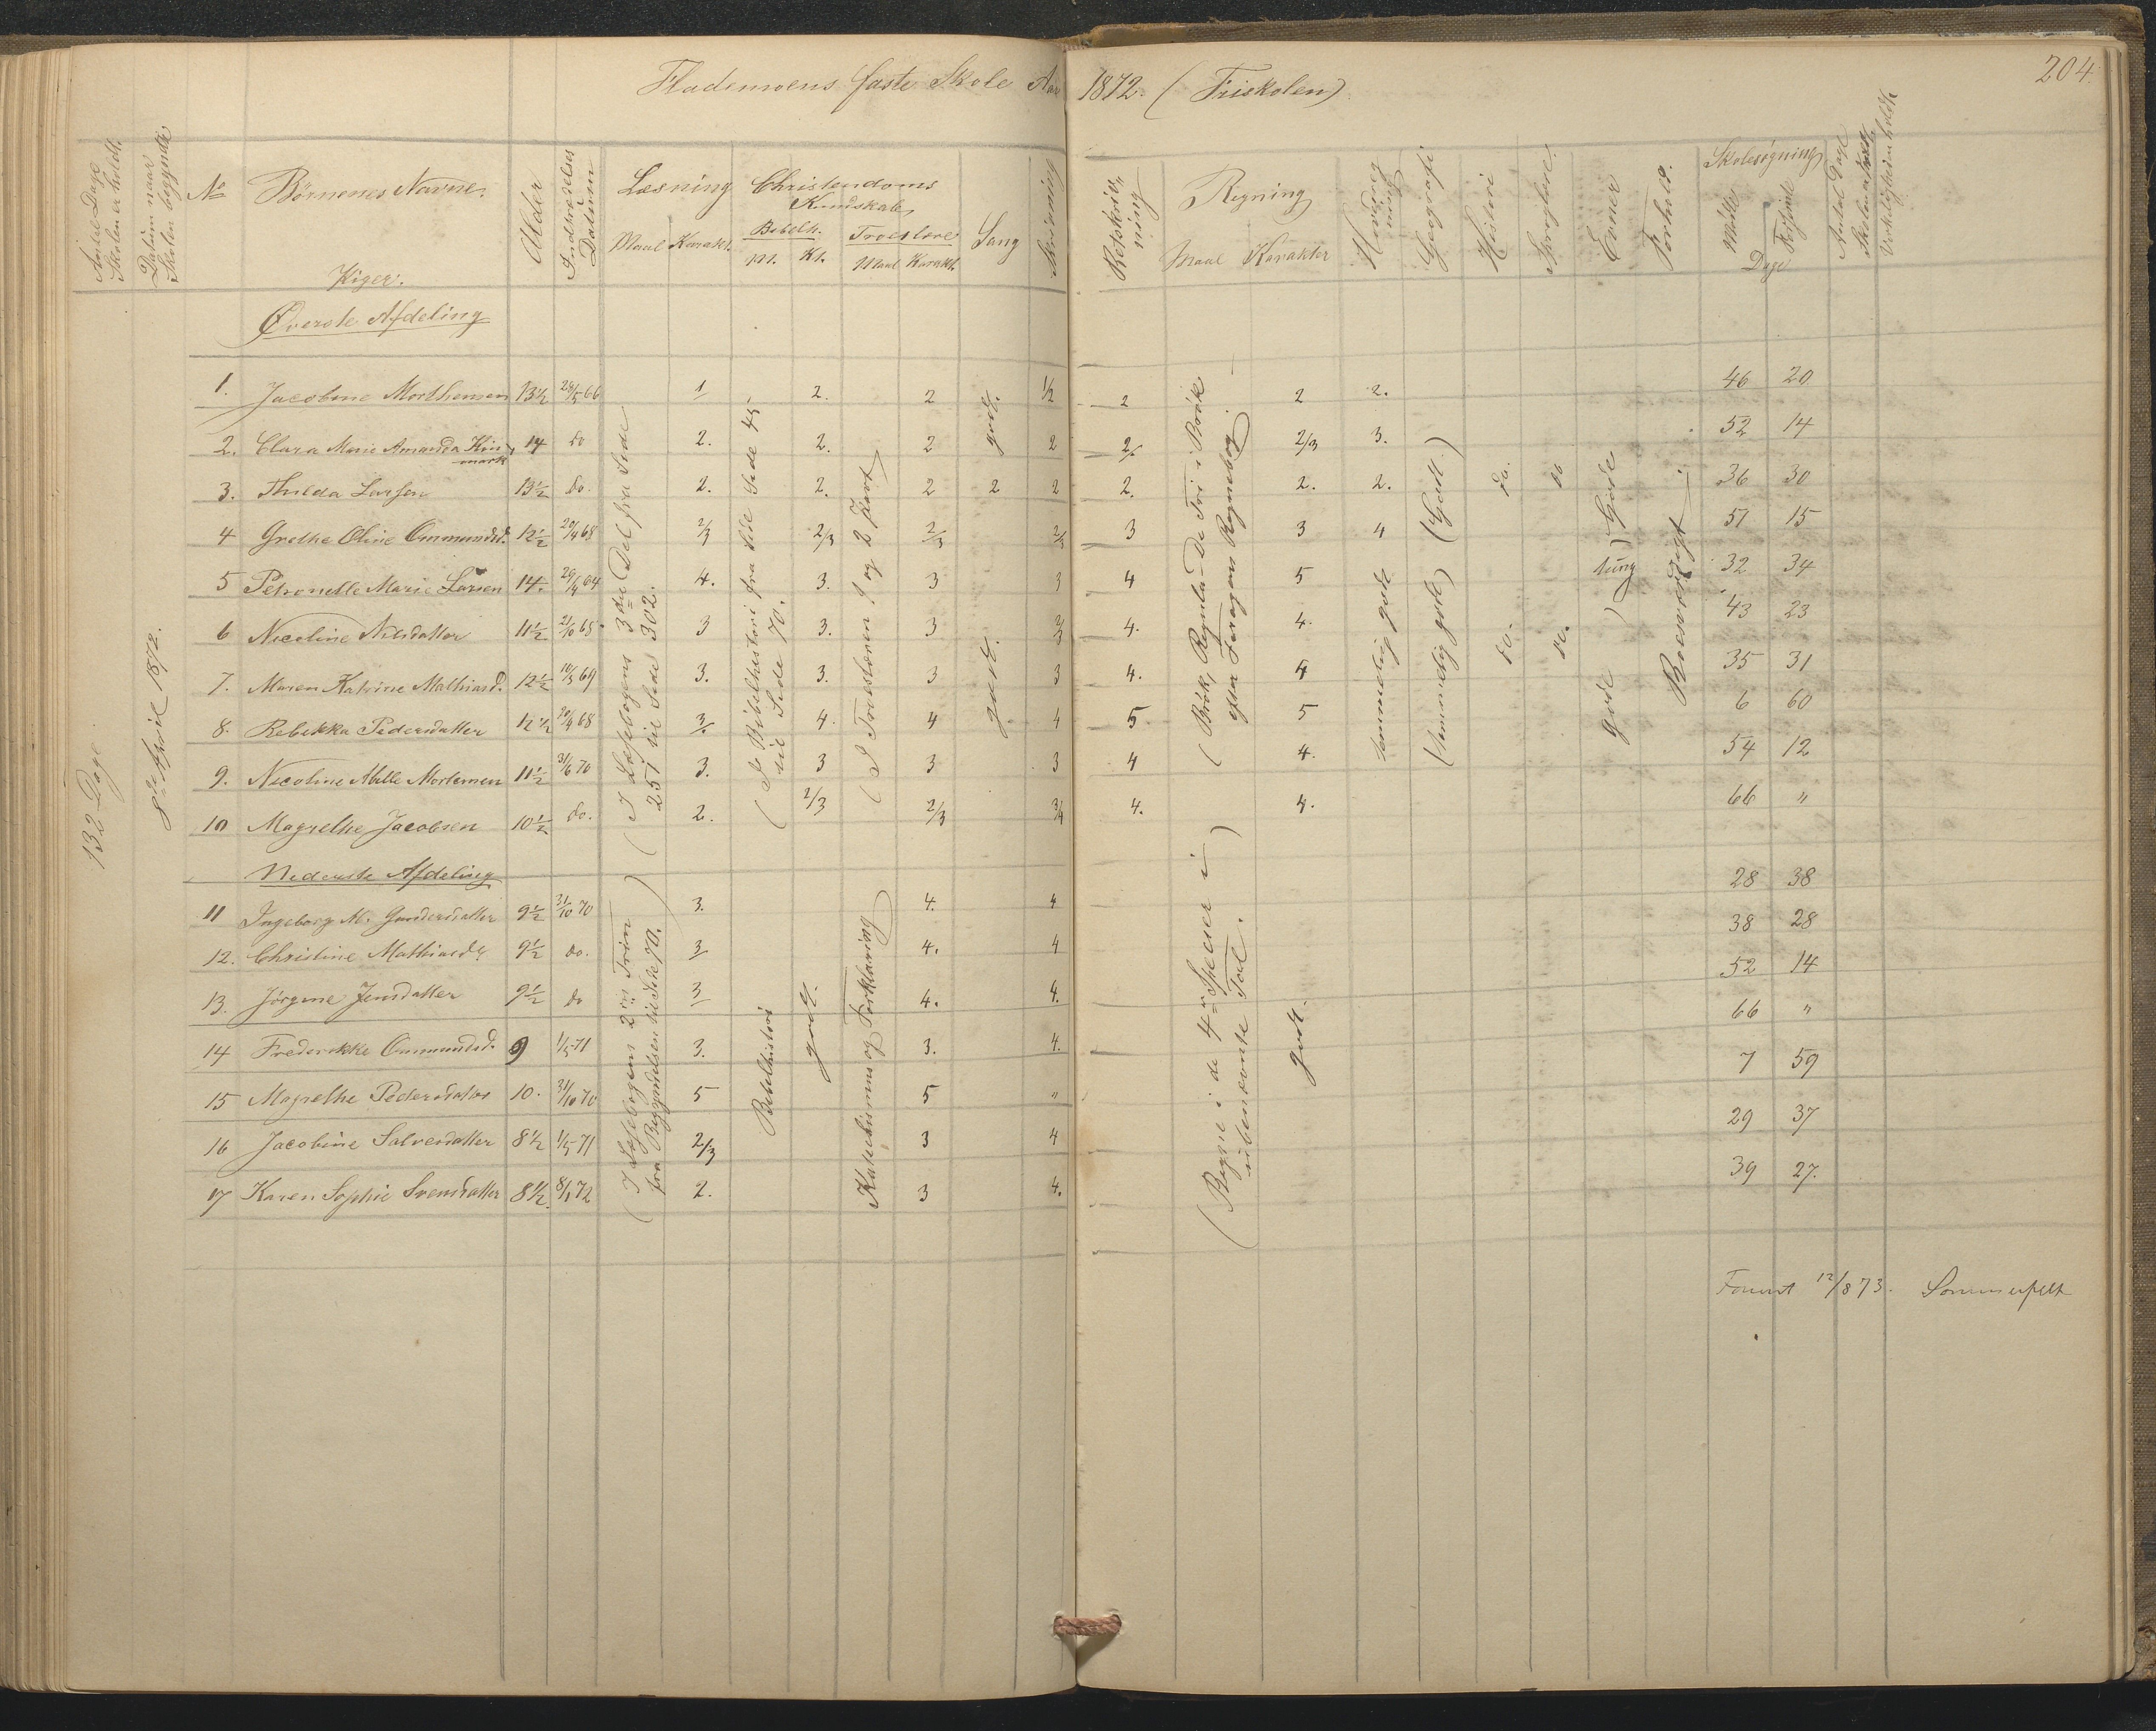 Flademoens faste Skole Aar 1872. (Friskolen)
204.
Antal Dage Skolen er holdt.
Datum naar Skolen begyndte
No
Börnenes Navne.
Alder
Indtrædelses Datum
Læsning
Maal Karakt.
Christendoms Kundskab
Bibelh.
M. Kt.
Troeslære
Maal Karakt.
Sang
Skrivning
Retskrivning
Regning
Maal Karakter
Geografi
Historie
Evner
Forhold.
Skolesøgning
Mødte Forsømte
Dage
Antal Dage
Piger.
Øverste Afdeling
132 Dage
8de April 1872.
1. Jacobine Morthensen 13½ 29/5 66 1 2. 2 1/2 2 2 2. 46 20
2. Clara Marie Amanda 14 do 2. 2. 2 2 2 2/3 3. 52 14
3. Thilda Larsen 13½ do. 2. 2. 2 2 2 2. 2. 2. 36 30
4 Grethe Oline Ommundsd. 12½ 20/4 68 2/3 2/3 2/3 2/3 3 3 4 51 15
5 Petronelle Marie Larsen 14. 29/4 64 4. 3. 3 3 4 5 32 34
6 Nicoline Nilsdatter 11½ 21/10 68 3 3. 3 4. 4. 43 23
7. Maren Katrine Mathiasd. 12½ 10/5 69 3. 3. 3 3 4. 4 35 31
8. Rebekka Pedersdatter 12½ 20/4 68 3. 4. 4 4 5 5 6 60
9. Nicoline Mille Mortensen 11½ 31/6 70 3. 3 3 3 4 4. 54 12
10 Magrethe Jacobsen 10½ do. 2. 2/3 2/3 3/4 4. 4. 66 "
(I Læsebogens 3die Del fra Side 251 til Side 302.
(I Bibelhistori fra Side Side 45- til Side 70.
(I Troeslæren 1 og 2 Part)
godt.
godt.
(Brök, Regula-De Tri i Brök efter Foragers Regnebog.
temmelig godt
(temmelig godt) (Godt.)
do. do
do. do.
gode ) tung ) Gode
Nederste Afdeling
11 Ingeborg M. Gundersdatter 9½ 31/10 70 3. 4. 4 28 38
12. Christine Mathiasd. 9½ do. 3 4. 4 38 28
13. Jörgine Jensdatter 9½ do 3 4. 4. 52 14
14 Frederikke Ommundsd. 9 1/5 71 3. 3. 4. 66 "
15 Magrethe Pedersdatter 10. 31/10 70 5 5 " 7 59
16 Jacobine Salvesdatter 8½ 1/5 71 2/3 3 4 29 37
17 Karen Sophie Svensdatter 8½. 8/1 72 2. 3 4. 39 27.
(I Læsebogens 2det Trin fra Begyndelsen til Side 70.)
Bibelhistori
godt.
Katekismus og Forklaring
(Regne i de 4re Specier i ubenævnte Tal.)
godt.
12/8 73. Sommerfelt